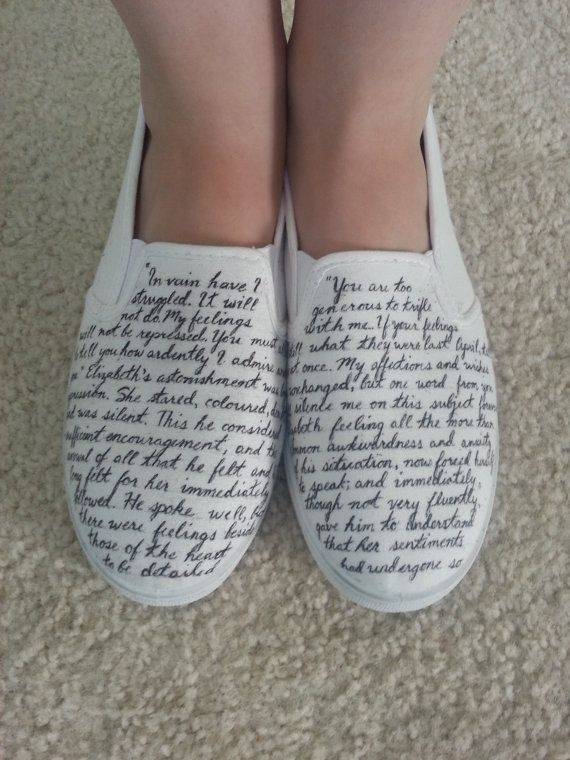 "In vain have I
struggled. It will
not do. My feelings
will not be repressed. You must
tell you how ardently I admire
Elizabeth's astonishment was
She stared, coloured,
was silent. This he considered
encouragement, and the
of all that he felt and
long felt for her immediately
He spoke well, but
there were feelings beside
those of the heart
to be detailed
"You are too
generous to trifle
with me. If your feelings
what they were last April,
at once. My affections and wishes
unchanged, but one word from you
silence me on this subject
feeling all the more than
awkwardness and anxiety
his situation, now forced
to speak; and immediately,
though not very fluently,
gave him to understand
that her sentiments
had undergone so